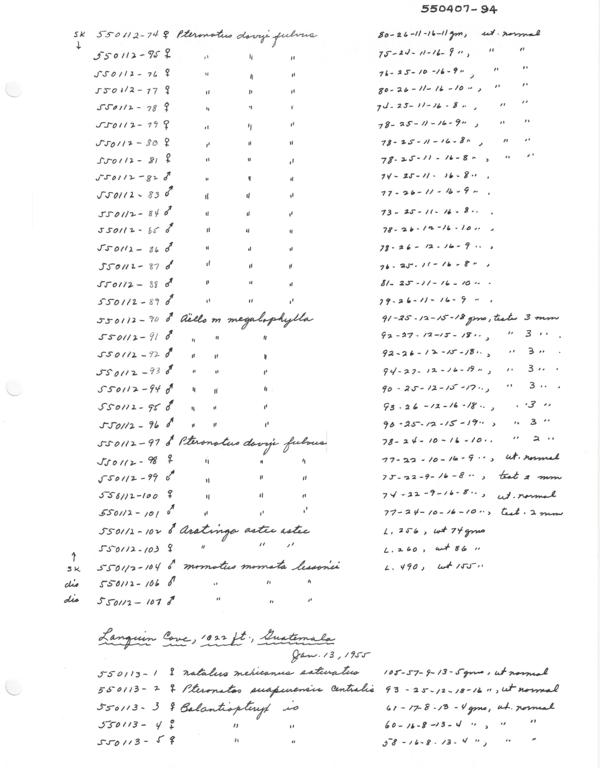 550407-94
SK 550112-74 ♀ Pteronotus davyi fulvus 80-26-11-16-11 gm, ut. normal
↓ 550112-95 ♀ " " " 75-24-11-16-9 ", " "
550112-76 ♀ " " " 76-25-10-16-9 ", " "
550112-77 ♀ " " " 80-26-11-16-10 ", " "
550112-78 ♀ " " " 74-25-11-16-8 ", " "
550112-79 ♀ " " " 78-25-11-16-9 ", " "
550112-80 ♀ " " " 78-25-11-16-8 ", " "
550112-81 ♀ " " " 78-25-11-16-8 ", " "
550112-82 ♂ " " " 74-25-11-16-8 ".
550112-83 ♂ " " " 77-26-11-16-9 ".
550112-84 ♂ " " " 73-25-11-16-8 ".
550112-85 ♂ " " " 78-26-12-16-10 ".
550112-86 ♂ " " " 78-26-12-16-9 ",
550112-87 ♂ " " " 76-25-11-16-8 ".
550112-88 ♂ " " " 81-25-11-16-10 ".
550112-89 ♂ " " " 79-26-11-16-9 ".
550112-90 ♂ Aello m megalophylla 91-25-12-15-18 gms, testes 3 mm
550112-91 ♂ " " " 92-27-12-15-18 ", " 3 "
550112-92 ♂ " " " 92-26-12-15-18 ", " 3 "
550112-93 ♂ " " " 94-27-12-16-19 ", " 3 "
550112-94 ♂ " " " 90-25-12-15-17 ", " 3 "
550112-95 ♂ " " " 93-26-12-16-18 ", " 3 "
550112-96 ♂ " " " 90-25-12-15-19 ", " 3 "
550112-97 ♂ Pteronotus davyi fulvus 78-24-10-16-10 " " 2 "
550112-98 ♀ " " " 77-22-10-16-9 ", ut. normal
550112-99 ♂ " " " 75-22-9-16-8 ", test 2 mm
550112-100 ♀ " " " 74-22-9-16-8 ", ut. normal
550112-101 ♂ " " " 77-24-10-16-10 ", test. 2 mm
550112-102 ♂ Aratinga astec astec L. 256, wt 74 gms
↑ 550112-103 ♀ " " " L. 260, wt 86 "
SK 550112-104 ♂ momotus momota lessonii L. 490, wt 155 "
dis 550112-106 ♂ " " "
dis 550112-107 ♂ " " "
Lanquin Cave, 1022 ft., Guatemala
Jan. 13, 1955
550113-1 ♀ natalus mexicanus saturatus 105-57-9-13-5 gms, ut normal
550113-2 ♀ Pteronotus suapurensis centralis 93-25-12-18-16 ", ut normal
550113-3 ♀ Balantiopteryx io 61-17-8-13-4 gms, ut. normal
550113-4 ♀ " " 60-16-8-13-4 ", " "
550113-5 ♀ " " 58-16-8-13-4 ", " "